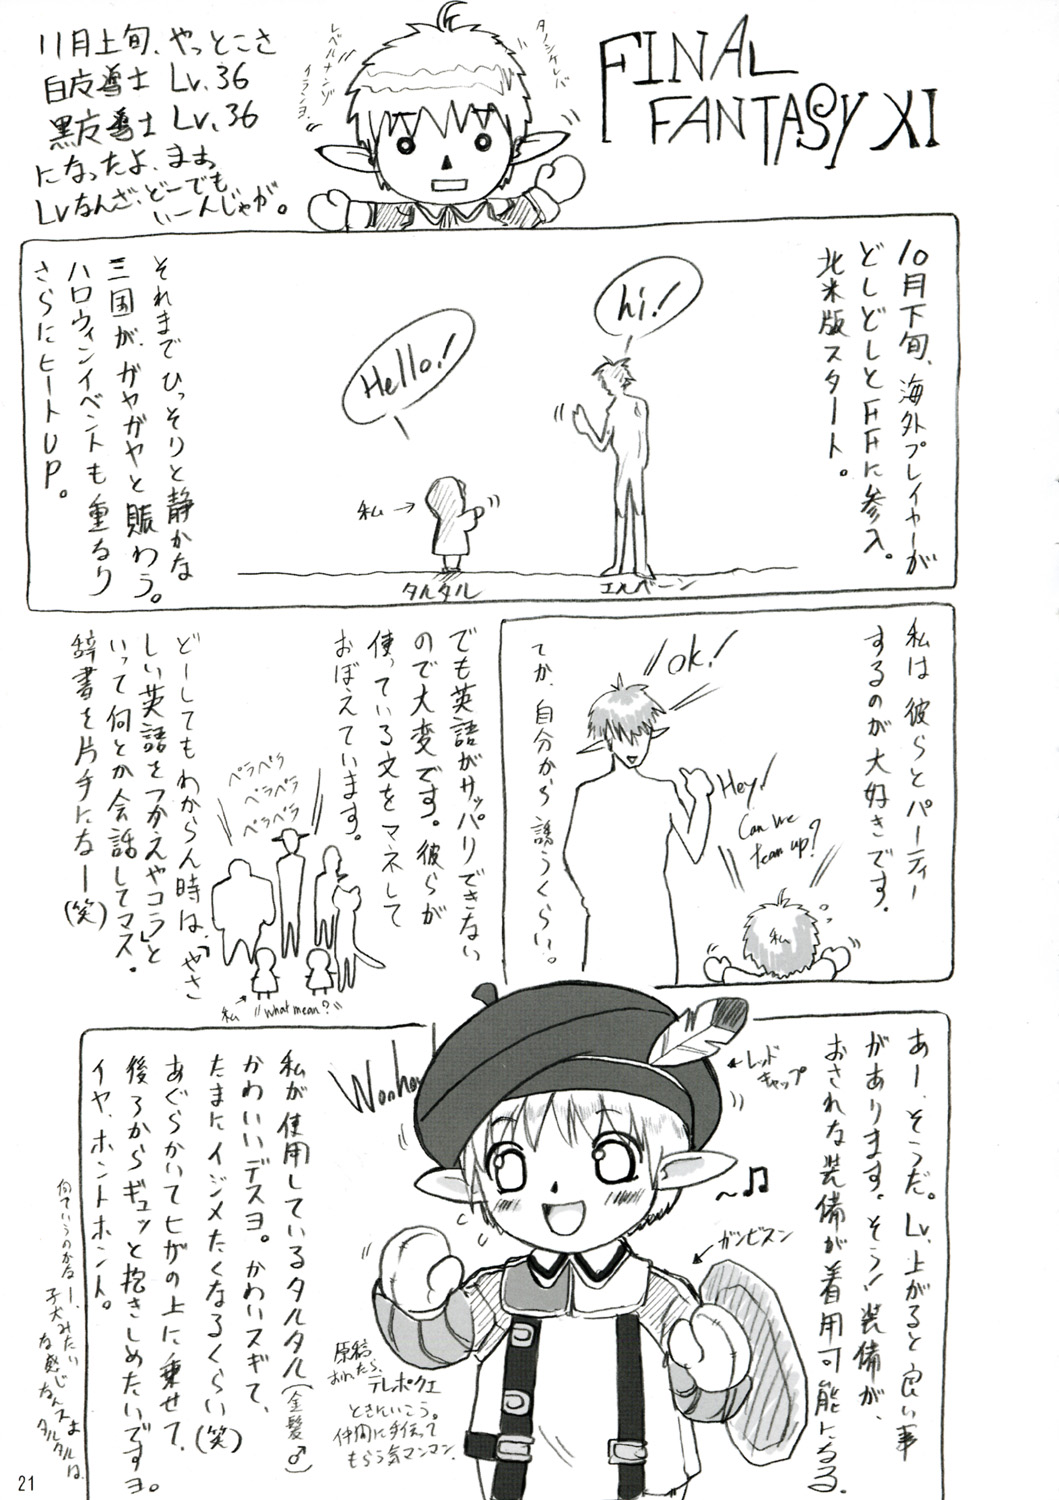 FINAL
FANTASY XI
11月上旬、やっとこさ
白魔導士 Lv.36
黒魔導士 Lv.36
になったよ、まぁ
Lvなんざ、どーでも
いーんじゃが。
タノシケレバ
レベルナンゾ
イランヨ
10月下旬、海外プレイヤーが
どしどしとFFに参入。
北米版スタート。
hi!
Hello!
私→
タルタル
エルベーン
それまでひっそりと静かな
三国が、ガヤガヤと賑わう。
ハロウィンイベントも重なり
さらにヒートUP。
私は彼らとパーティー
するのが大好きです。
ok!
Hey!
Can we
team up?
私
てか、自分から誘うくらい。
でも英語がサッパリできない
ので大変です。彼らが
使っている文をマネして
おぼえています。
ペラペラ
ペラペラ
ペラペラ
私
What mean?
どーしてもわからん時は、「やさ
しい英語をつかえやコラ」と
いって何とか会話してマス。
辞書を片手になー(笑)
あー、そうだ。Lv.上がると良い事
があります。そう!装備が、
おされな装備が着用可能になる。
←レッド
キャップ
ガンビスン
私が使用しているタルタル(金髪♂)
かわいいデスヨ。かわいスギて、
たまにイジメたくなるくらい(笑)
あぐらかいてヒザの上に乗せて、
後ろからギュッと抱きしめたいですヨ。
イヤ、ホントホント。
何ていうのかなー、
子犬みたい
な感じなんスよ
タルタルは、
原稿
おわったら、
テレポクエ
ときにいこう。
仲間に手伝って
もらう気マンマン。
21